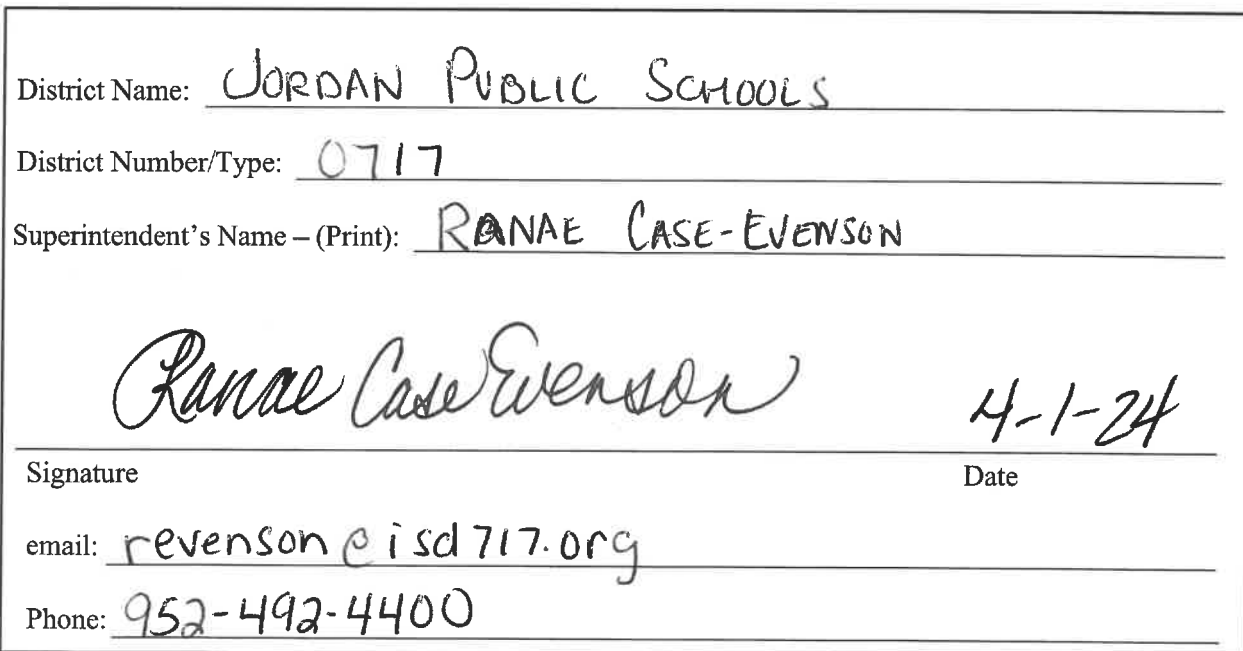 District Name: JORDAN PUBLIC SCHOOLS
District Number/Type: 0717
Superintendent's Name – (Print): RANAE CASE-EVENSON
Ranae Case Evenson 4-1-24
Signature Date
email: revenson@isd717.org
Phone: 952-492-4400